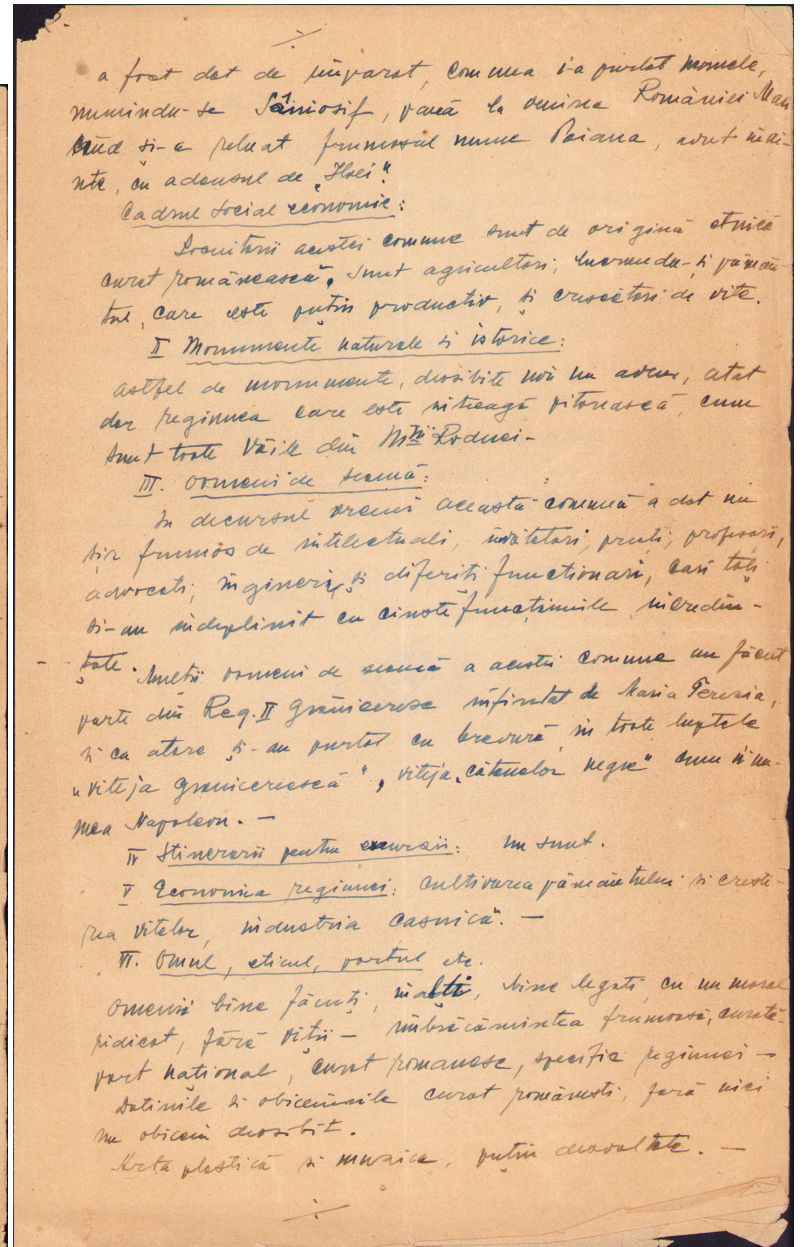 a fost dat de împarat, comuna i-a purtat numele,
numindu-se Sâniosif, până la unirea României Mari
când si-a reluat frumosul nume Poiana, avut înai-
nte, cu adausul de „Ilvei”.
Cadrul social economic:
Locuitorii acestei comune sunt de origină etnică
curat românească, sunt agricultori, lucrandu-si pămân-
tul, care este puțin productiv, și crescători de vite.
II Monumente naturale si istorice:
Astfel de monumente, deosibite noi nu avem, atat
dar regiunea care este intreagă pitorească, cum
sunt toate Văile din Mții Rodnei-
III. Oameni de seamă:
In decursul vremii această comună a dat un
șir frumos de intelectuali, învătători, preoți, profesori,
advocati, ingineri, și diferiti functionari, cari toți
si-au indeplinit cu cinste funcțiunile incredin-
țate. Multii oameni de seamă a acestei comune au făcut
parte din Reg. II Grăniceresc infiintat de Maria Terezia,
si ca atare și-au purtat cu bravură in toate luptele
„viteja granicerească”, viteja „cătanelor negre” cum îi nu-
mea Napoleon. —
IV Itinerarii pentru excursii: nu sunt.
V Economia regiunei: Cultivarea pământului si creste-
rea vitelor, industria casnică. —
VI. Omul, eticul, portul etc.
Omenii bine făcuți, inalti, bine legati, cu un moral
ridicat, fără vitii — îmbrăcămintea frumoasă, curată-
port național, curat romanesc, specific regiunei —
Datinile si obiceiurile curat românesti, fară nici
un obiceiu deosibit.
Arta plastică si muzica, puțin desvoltate. —